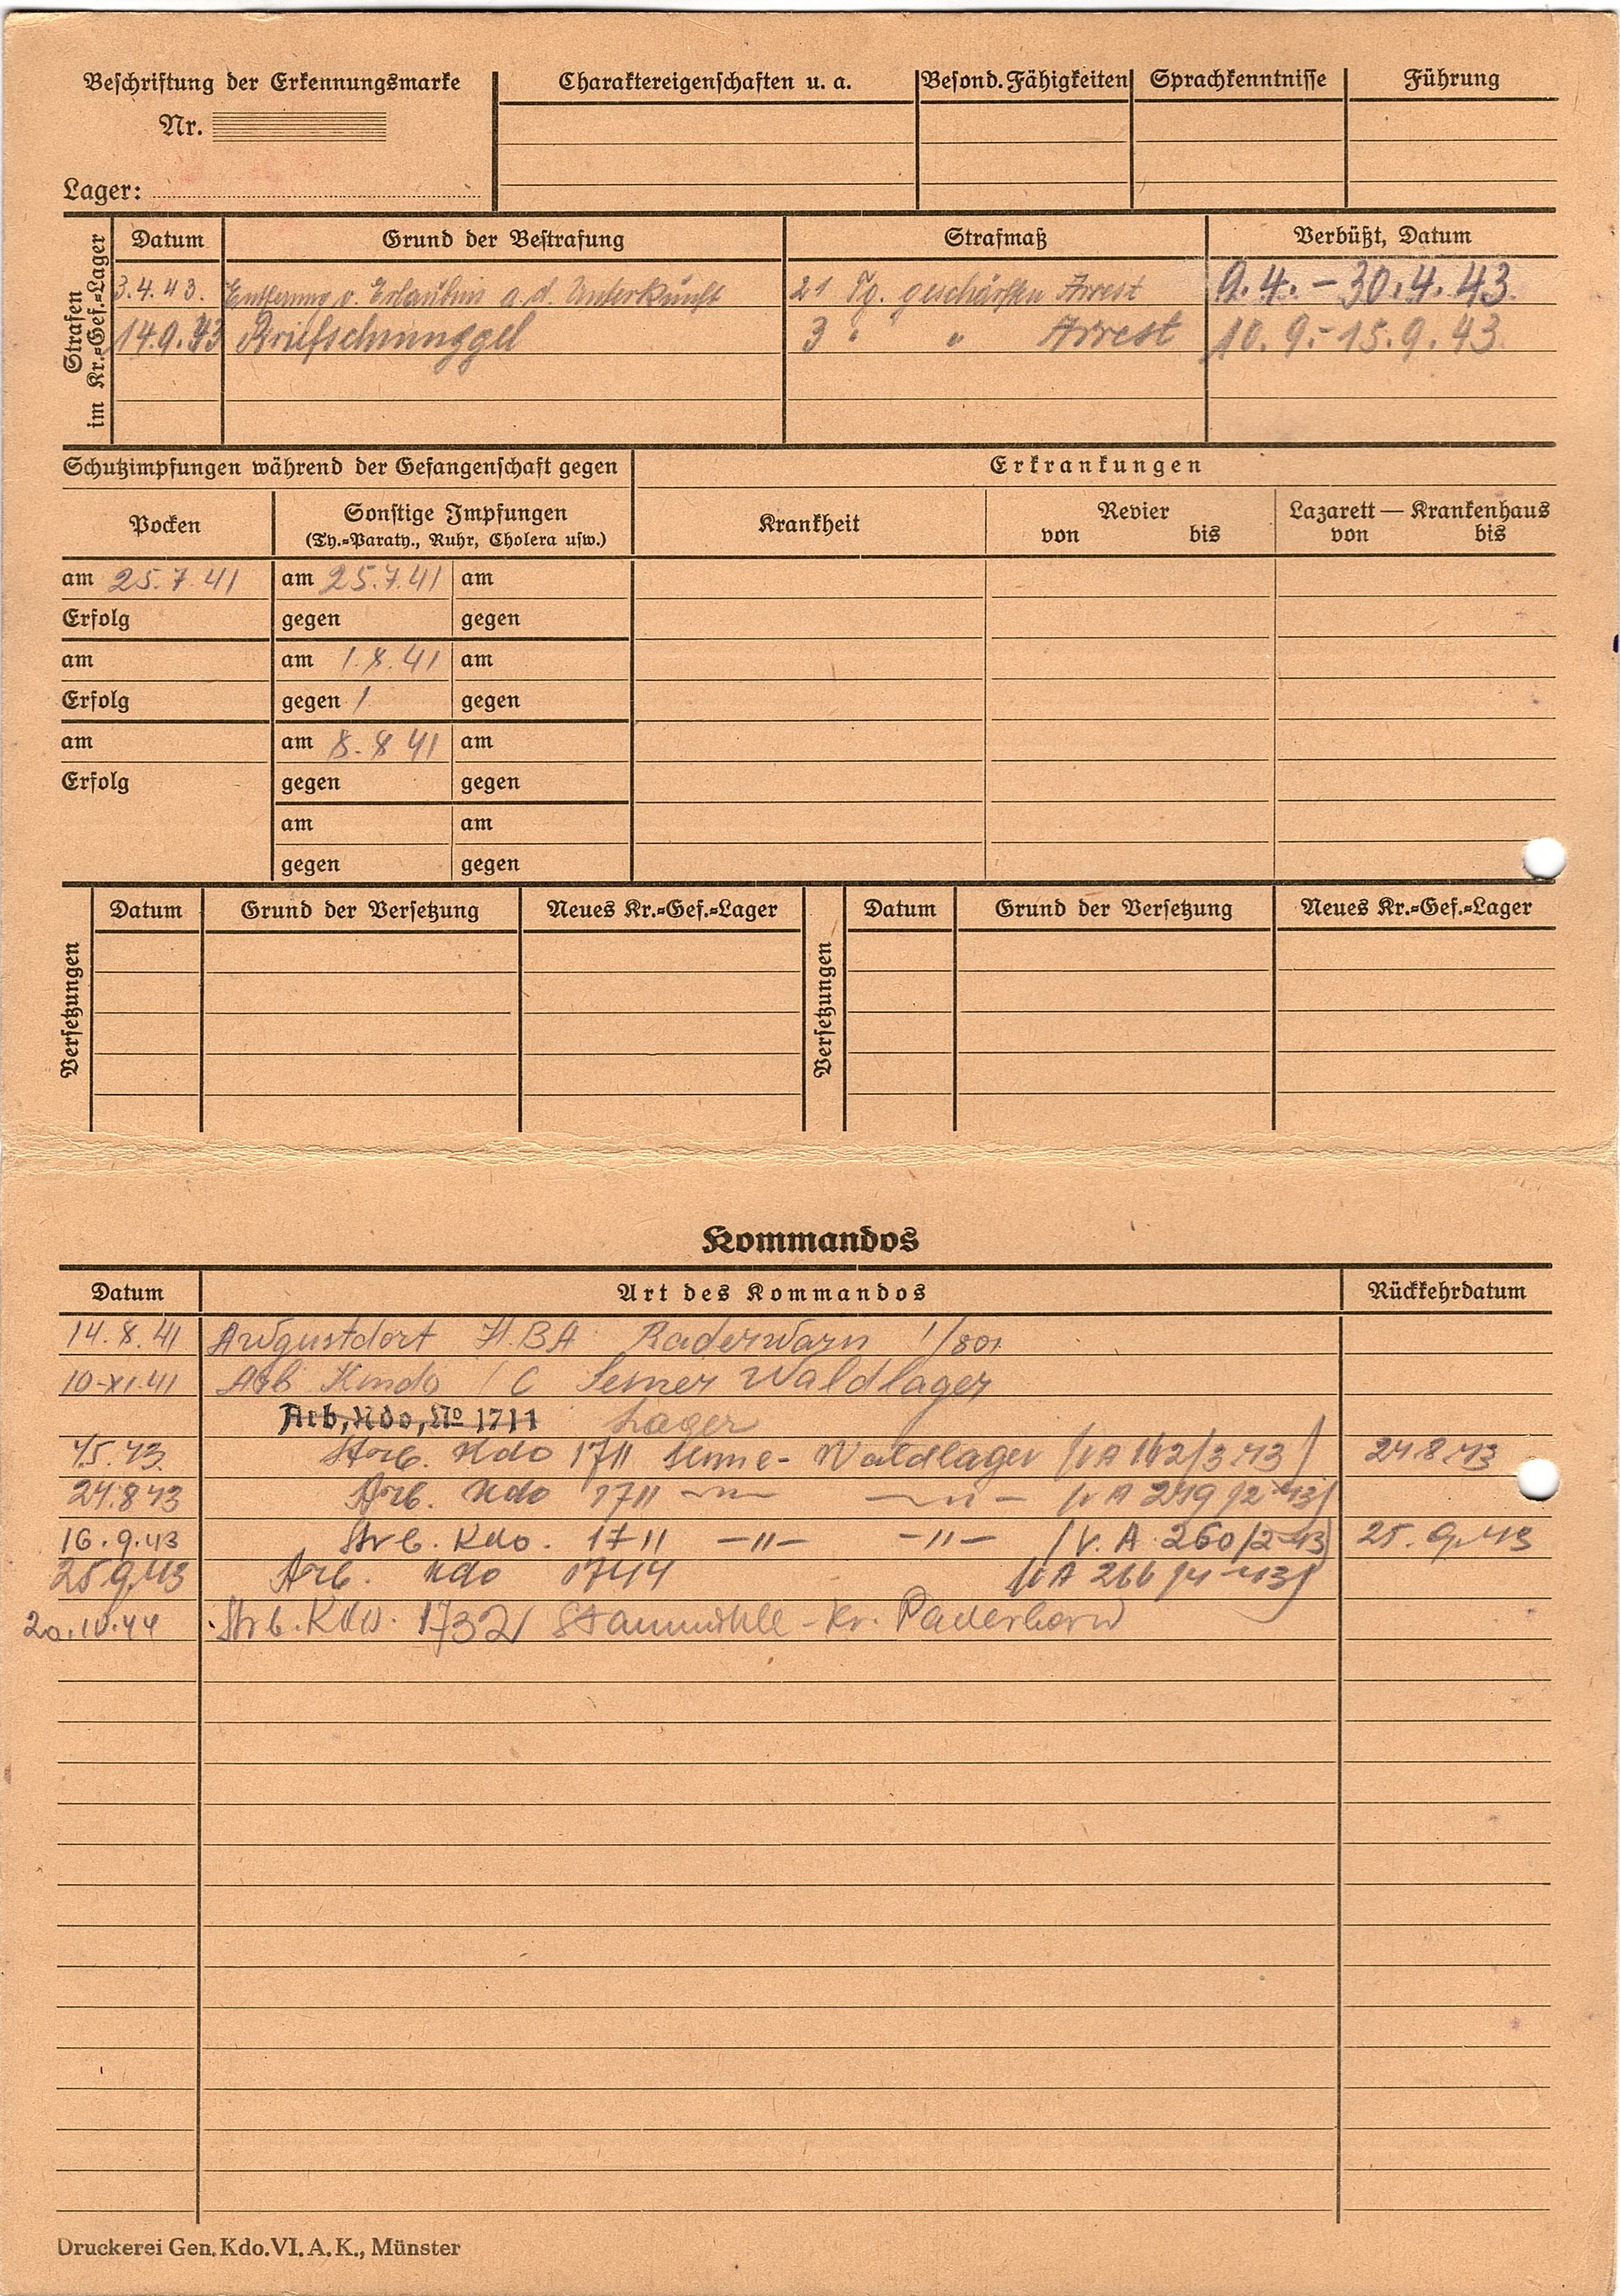 Beschriftung der Erkennungsmarke
Nr.
Lager:
Charaktereigenschaften u. a.
Besond. Fähigkeiten
Sprachkenntnisse
Führung
Strafen im Kr.=Gef.=Lager
Datum Grund der Bestrafung Strafmaß Verbüßt, Datum
3.4.43. Entfernung o. Erlaubnis a. d. Unterkunft 21 Tg. geschärften Arrest 9.4. – 30.4.43.
14.9.43 Briefschmuggel 3 " " Arrest 10.9.-15.9.43.
Schutzimpfungen während der Gefangenschaft gegen
Erkrankungen
Pocken
Sonstige Impfungen
(Ty.=Paraty., Ruhr, Cholera usw.)
Krankheit
Revier
von bis
Lazarett — Krankenhaus
von bis
am 25.7.41 am 25.7.41 am
Erfolg gegen gegen
am am 1.8.41 am
Erfolg gegen / gegen
am am 8.8 41 am
Erfolg gegen gegen
am am
gegen gegen
Versetzungen
Datum Grund der Versetzung Neues Kr.=Gef.=Lager
Versetzungen
Datum Grund der Versetzung Neues Kr.=Gef.=Lager
Kommandos
Datum Art des Kommandos Rückkehrdatum
14.8.41 Augustdorf H.B.A 1/801
10-XI.41 Arb Kmdo / C Senner Waldlager
Arb, Kdo, No 1711 Lager
Kdo 1711 Senne- Waldlager 24.8.43
24.8 43 Arb. Kdo 1711
16.9.43 Kdo. 1711 –"– –"– (V. A. 260/2-43) 25.9.43
25.9.43 Arb. Kdo 1744
20.10.44 Arb. Kdo. 1732 Staumühle - Kr. Paderborn
Druckerei Gen. Kdo. VI. A. K., Münster